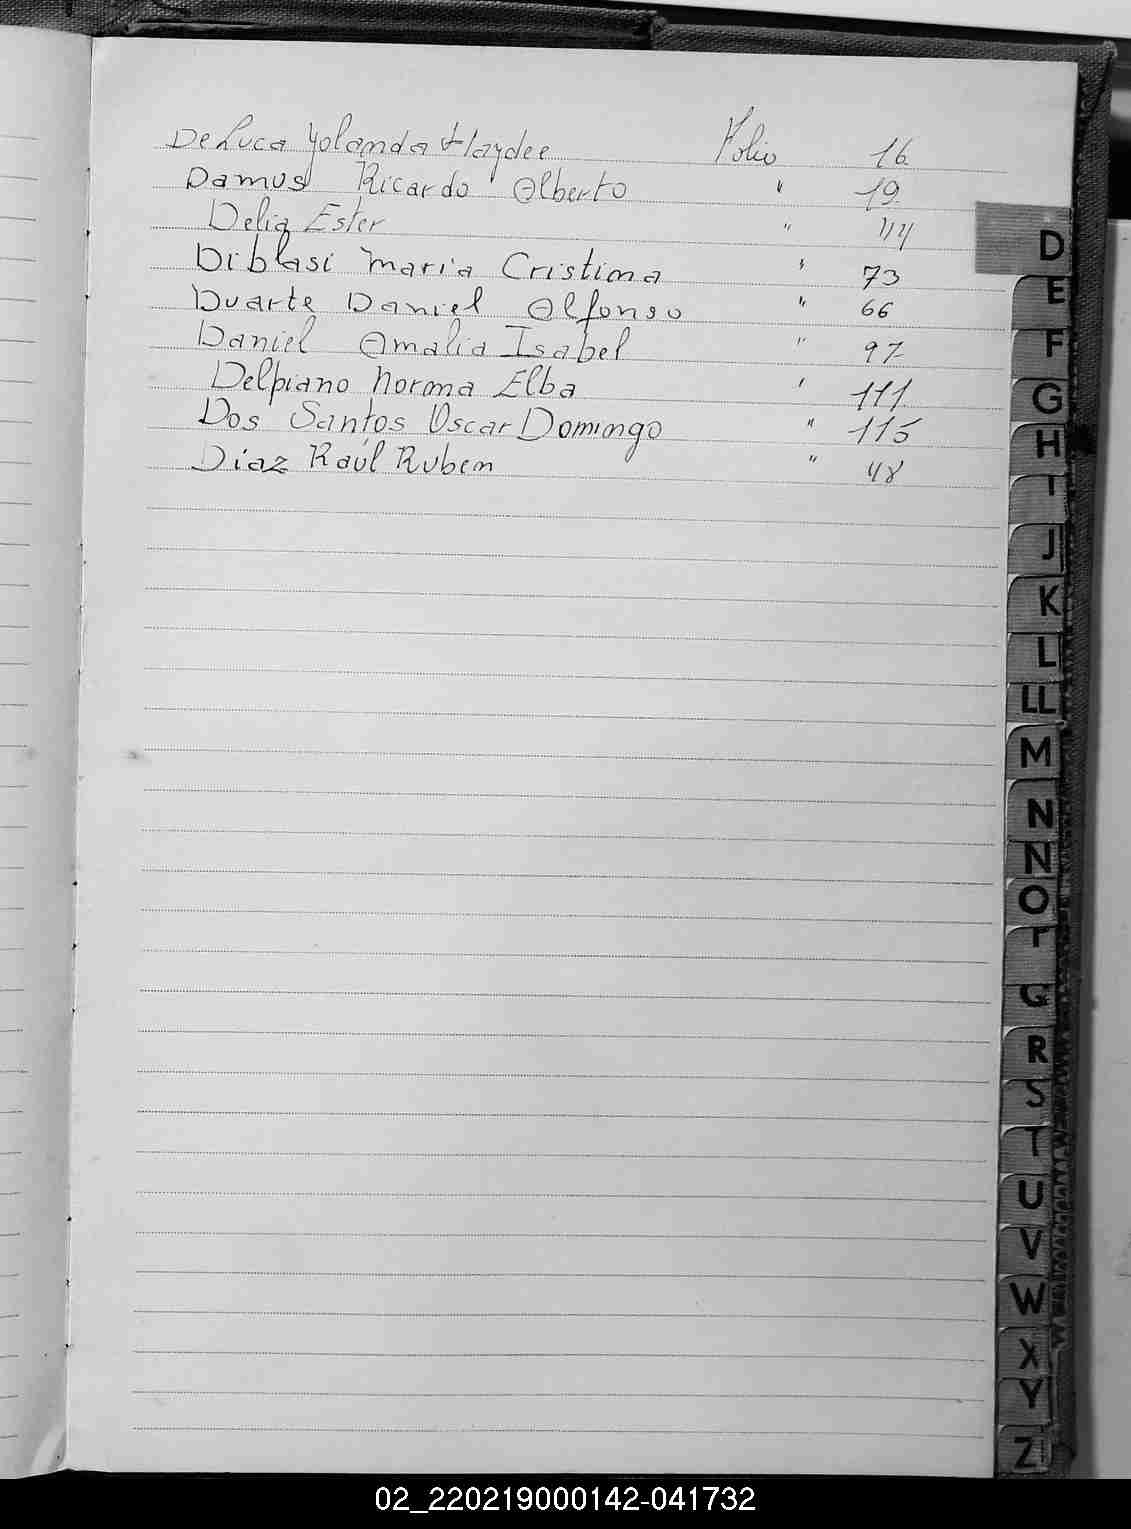 De Luca Yolanda Haydee Folio 16
Damus Ricardo Alberto " 19
Delia Ester " 44
Diblasi Maria Cristina " 73
Duarte Daniel Alfonso " 66
Daniel Amalia Isabel " 97
Delpiano Norma Elba " 111
Dos Santos Oscar Domingo " 115
Diaz Raúl Ruben " 48
D
E
F
G
H
I
J
K
L
LL
M
N
Ñ
O
P
Q
R
S
T
U
V
W
X
Y
Z
02_220219000142-041732